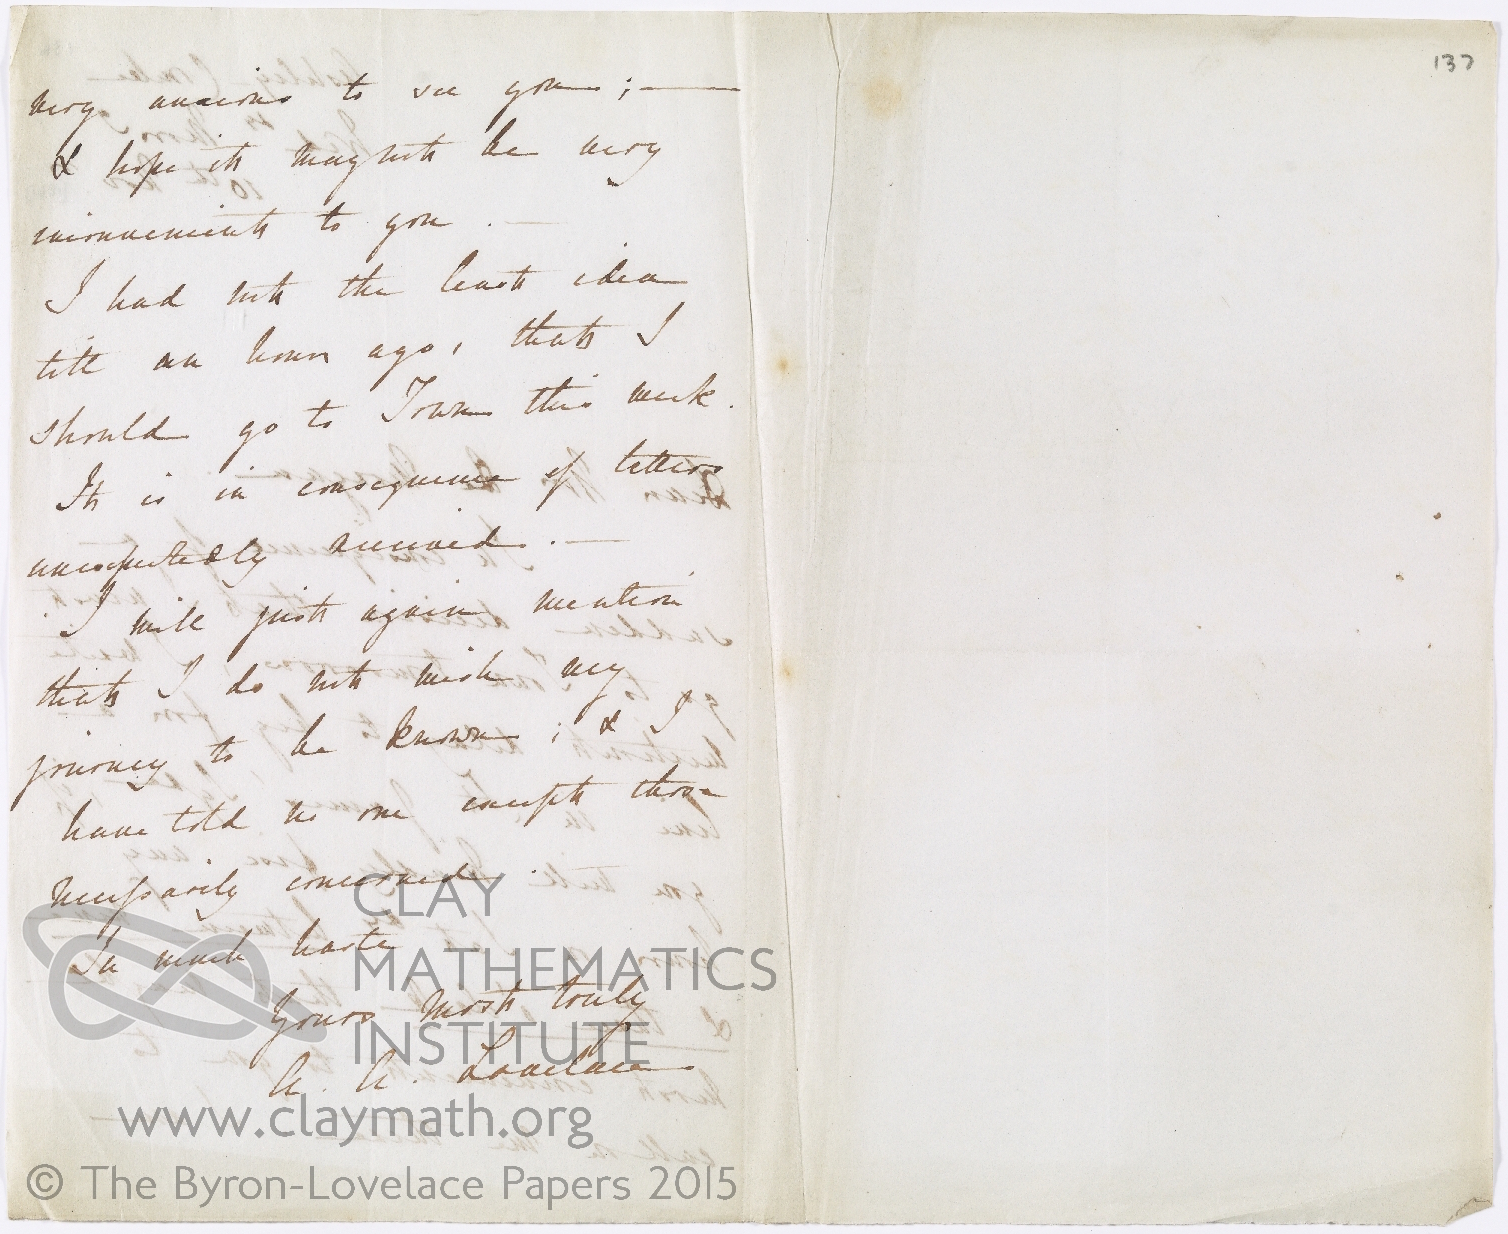 137
very anxious to see you ; —
& hope it may not be very
inconvenient to you . —
I had not the least idea
till an hour ago, that I
should go to Town this week.
It is in consequence of letters
unexpectedly received . —
I will just again mention
that I do not wish my
journey to be known ; & I
have told no one except those
necessarily concerned .
In much haste
Yours most truly
A. A. Lovelace
CLAY
MATHEMATICS
INSTITUTE
www.claymath.org
© The Byron-Lovelace Papers 2015